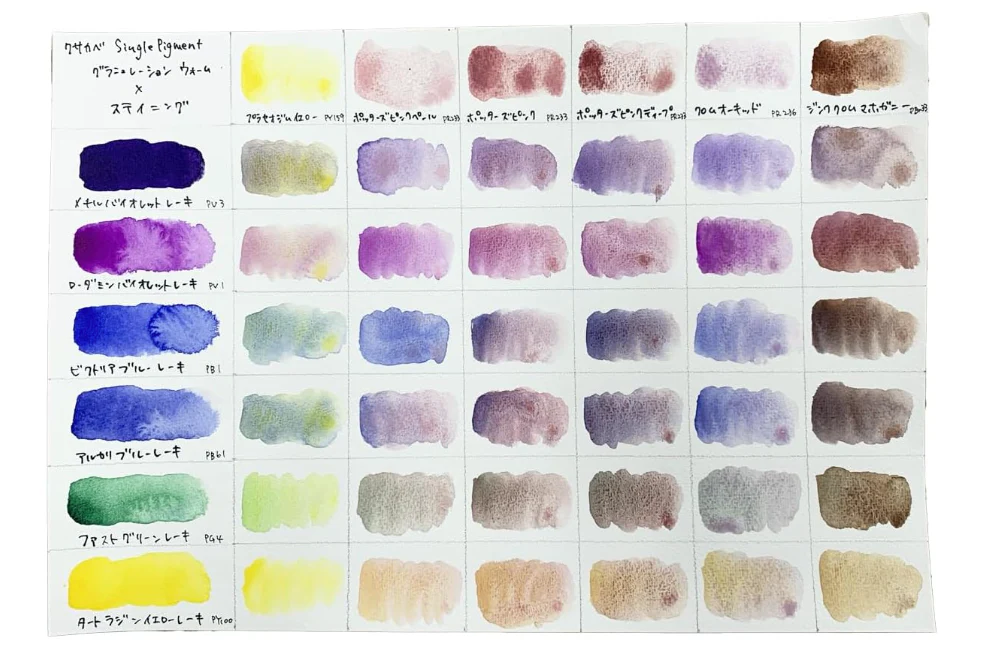 クサカベ Single Pigment
グラニュレーション ウォーム
×
ステイニング
プラセオジムイエロー PY159
ポッターズピンクペール PR233
ポッターズピンク PR233
ポッターズピンクディープ PR233
クロムオーキッド PR236
ジンククロムマホガニー PBr33
メチルバイオレットレーキ PV3
ローダミンバイオレットレーキ PV1
ビクトリアブルーレーキ PB1
アルカリブルーレーキ PB61
ファストグリーンレーキ PG4
タートラジンイエローレーキ PY100